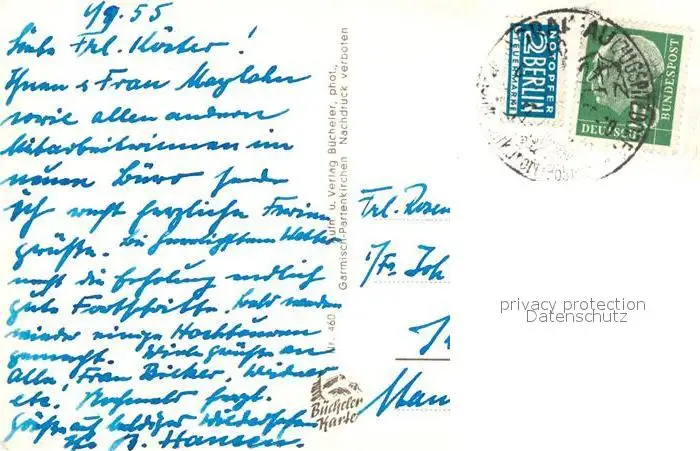 1/9.55
Liebe Frl. Köster!
Ihnen u Frau Maylahn
sowie allen andern
Mitarbeiterinnen im
neuen Büro sende
ich recht herzliche Ferien
grüße. Bei herrlichstem Wetter
macht die Erholung endlich
gute Fortschritte. Bald werden
wieder einige Hochtouren
gemacht. Viele Grüße an
Alle! Frau Bicker, Widner
etc. Nochmals herzl.
Grüße auf baldiges Wiedersehen
Ihr B. Hansen.
Nr. 460
Aufn. u. Verlag Bücheler, phot.,
Garmisch-Partenkirchen Nachdruck verboten
Bücheler
Karte
Frl. Rosen
i/Fa. Joh
Man
NOTOPFER
2 BERLIN
STEUERMARKE
DEUTSCHE
BUNDESPOST
privacy protection
Datenschutz